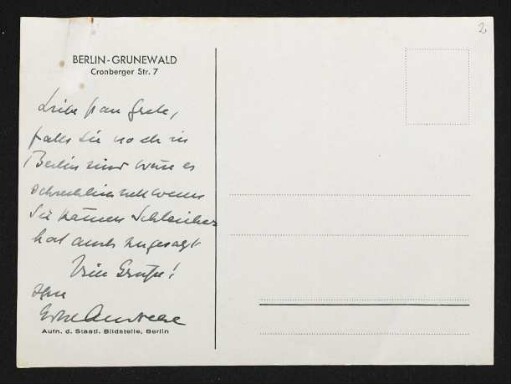 2.
BERLIN-GRUNEWALD
Cronberger Str. 7
Liebe Frau Grete,
falls Sie noch in
Berlin sind wäre es
schrecklich nett wenn
Sie kämen Schleicher
hat auch zugesagt
Viele Grüße!
Ihre
Aufn. d. Staatl. Bildstelle, Berlin